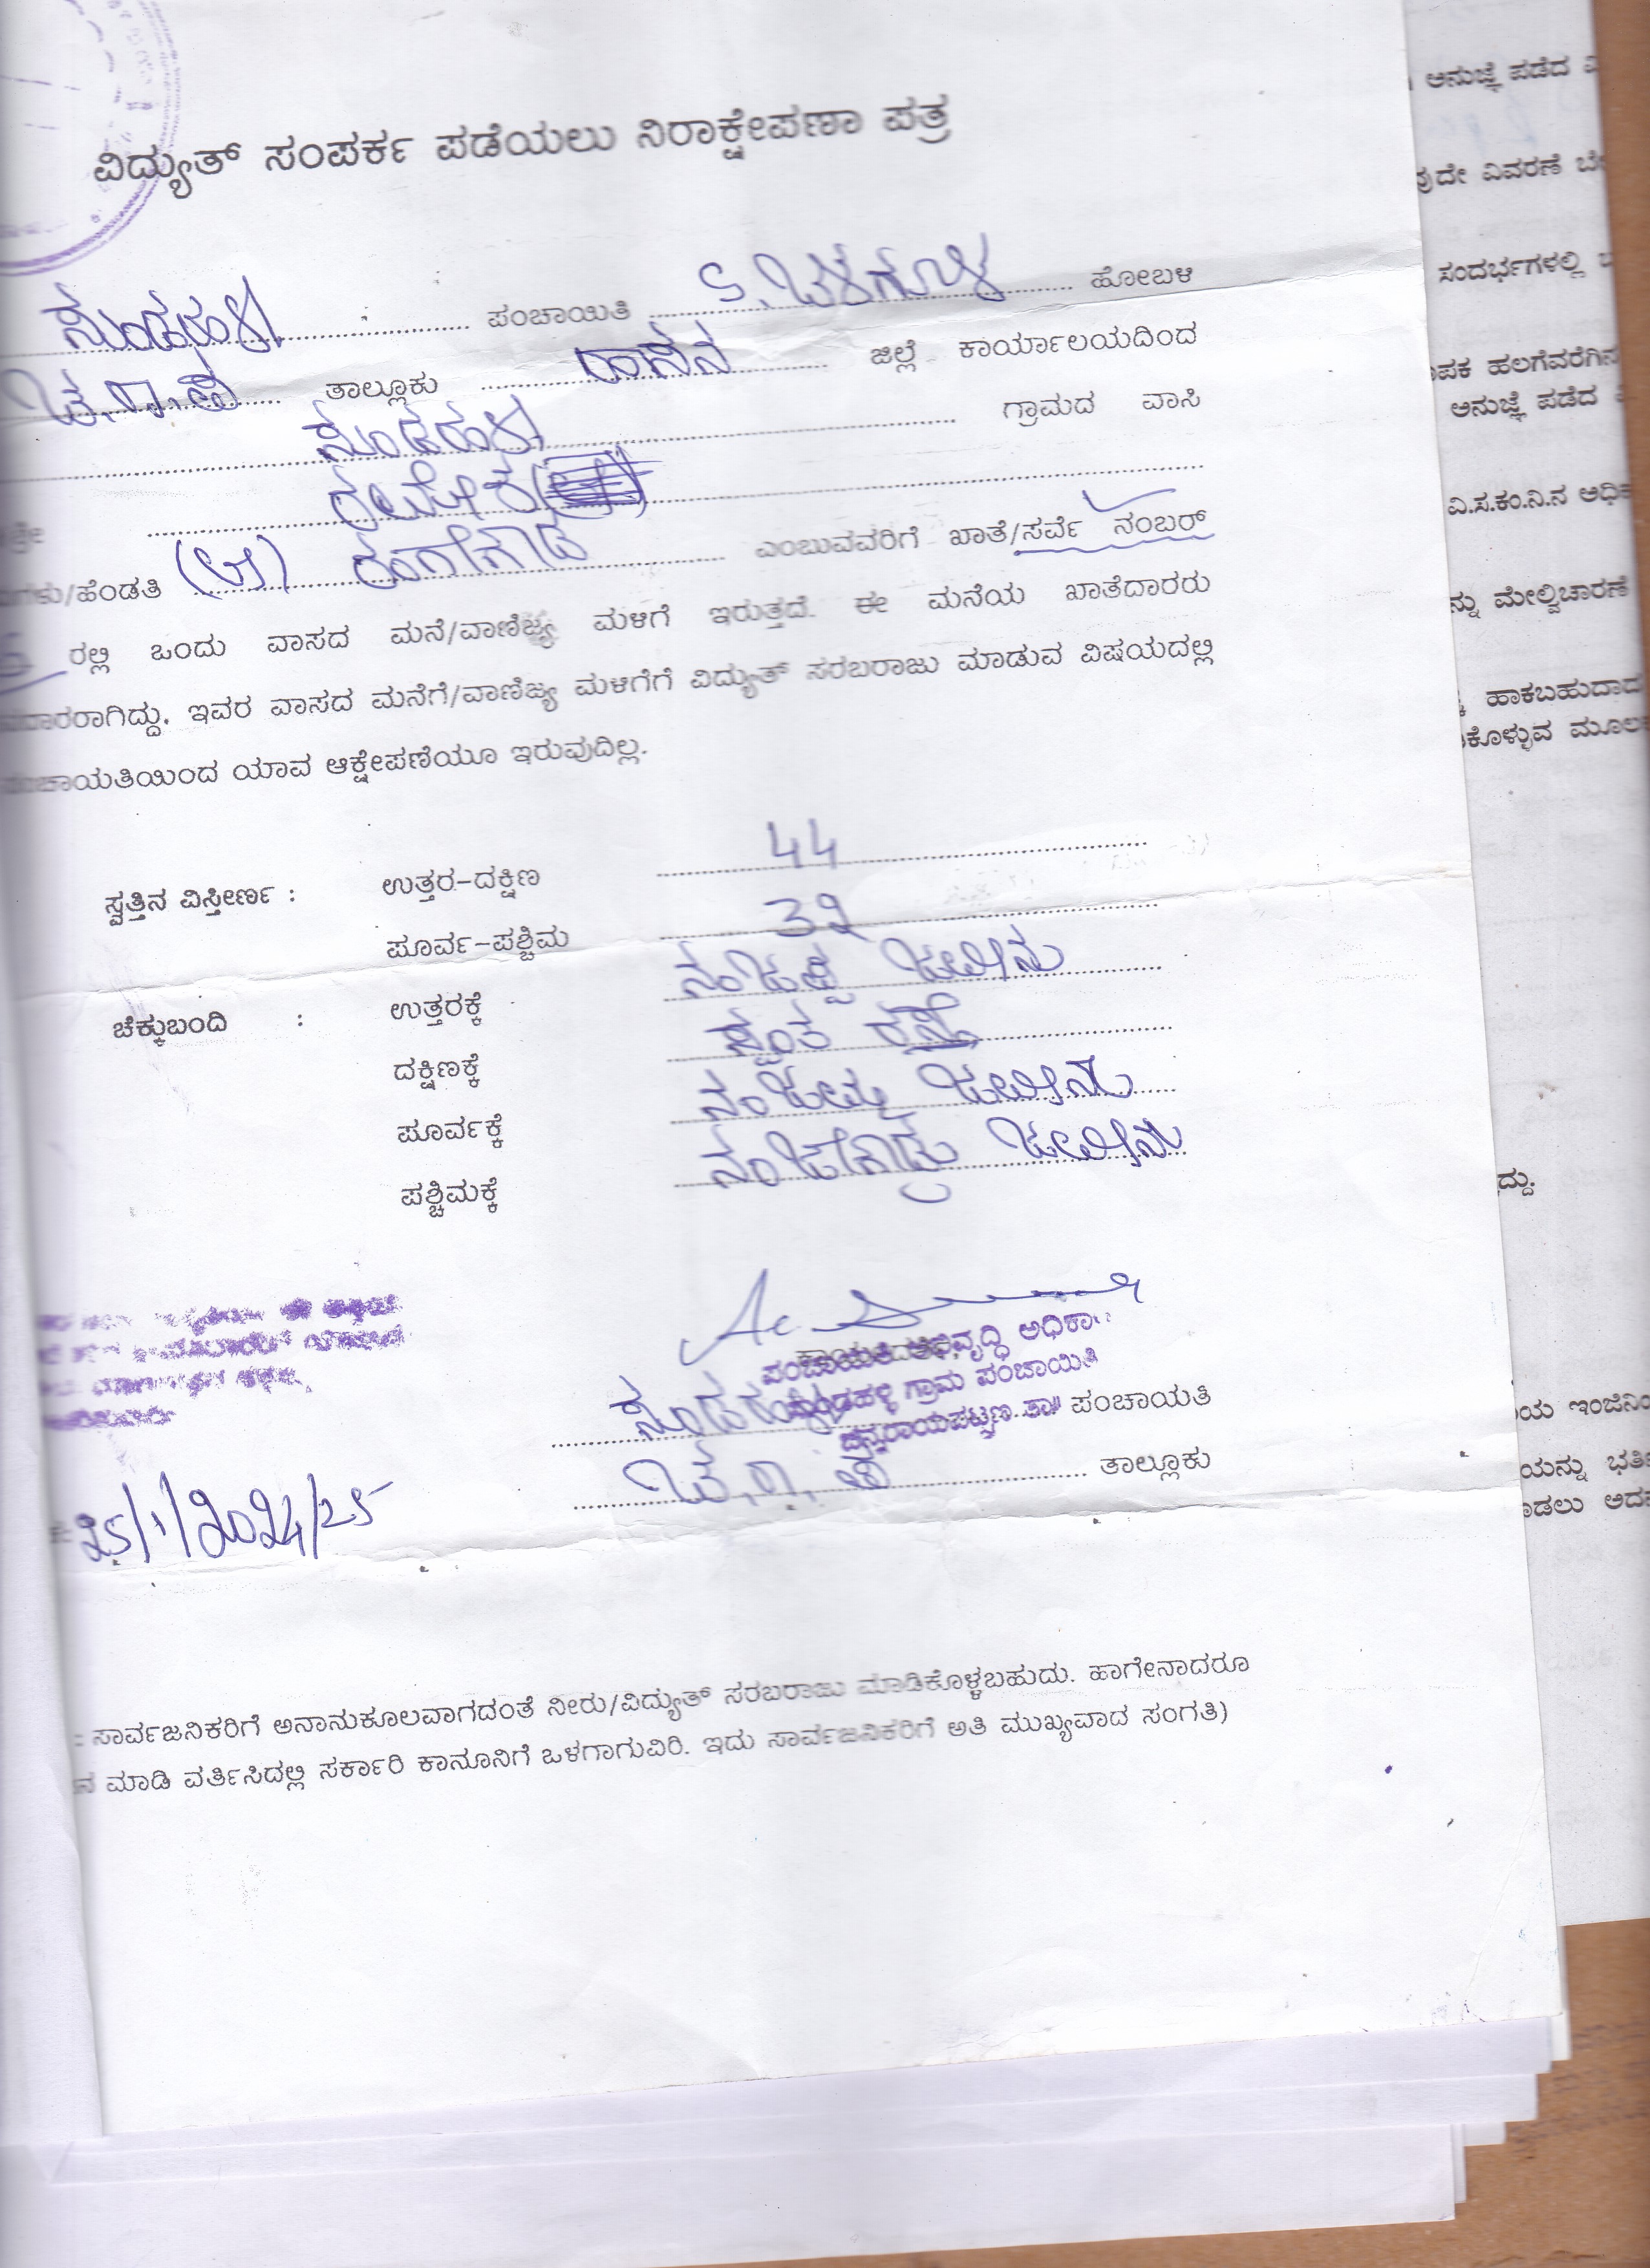 ವಿದ್ಯುತ್ ಸಂಪರ್ಕ ಪಡೆಯಲು ನಿರಾಕ್ಷೇಪಣಾ ಪತ್ರ
ಪಂಚಾಯಿತಿ ಹೋಬಳಿ
ಚ.ರಾ.ಪ ತಾಲ್ಲೂಕು ಹಾಸನ ಜಿಲ್ಲೆ ಕಾರ್ಯಾಲಯದಿಂದ
ಗ್ರಾಮದ ವಾಸಿ
ರಮೇಶ
/ಹೆಂಡತಿ ರಂಗೇಗೌಡ ಎಂಬುವವರಿಗೆ ಖಾತೆ/ಸರ್ವೆ ನಂಬರ್
ರಲ್ಲಿ ಒಂದು ವಾಸದ ಮನೆ/ವಾಣಿಜ್ಯ ಮಳಿಗೆ ಇರುತ್ತದೆ. ಈ ಮನೆಯ ಖಾತೆದಾರರು
ದಾರರಾಗಿದ್ದು, ಇವರ ವಾಸದ ಮನೆಗೆ/ವಾಣಿಜ್ಯ ಮಳಿಗೆಗೆ ವಿದ್ಯುತ್ ಸರಬರಾಜು ಮಾಡುವ ವಿಷಯದಲ್ಲಿ
ಪಂಚಾಯತಿಯಿಂದ ಯಾವ ಆಕ್ಷೇಪಣೆಯೂ ಇರುವುದಿಲ್ಲ.
ಸ್ವತ್ತಿನ ವಿಸ್ತೀರ್ಣ : ಉತ್ತರ-ದಕ್ಷಿಣ 44
ಪೂರ್ವ-ಪಶ್ಚಿಮ 32
ಚೆಕ್ಕುಬಂದಿ : ಉತ್ತರಕ್ಕೆ ನಂಜಪ್ಪ ಜಮೀನು
ದಕ್ಷಿಣಕ್ಕೆ ಸ್ವಂತ ರಸ್ತೆ
ಪೂರ್ವಕ್ಕೆ ನಂಜಮ್ಮ ಜಮೀನು
ಪಶ್ಚಿಮಕ್ಕೆ ನಂಜೇಗೌಡ್ರು ಜಮೀನು
ಪಂಚಾಯಿತಿ ಅಭಿವೃದ್ಧಿ ಅಧಿಕಾ
ಗ್ರಾಮ ಪಂಚಾಯಿತಿ
ಚನ್ನರಾಯಪಟ್ಟಣ ತಾ॥ ಪಂಚಾಯತಿ
ಚ.ರಾ.ಪ ತಾಲ್ಲೂಕು
25/1/2024/25
: ಸಾರ್ವಜನಿಕರಿಗೆ ಅನಾನುಕೂಲವಾಗದಂತೆ ನೀರು/ವಿದ್ಯುತ್ ಸರಬರಾಜು ಮಾಡಿಕೊಳ್ಳಬಹುದು. ಹಾಗೇನಾದರೂ
ಮಾಡಿ ವರ್ತಿಸಿದಲ್ಲಿ ಸರ್ಕಾರಿ ಕಾನೂನಿಗೆ ಒಳಗಾಗುವಿರಿ. ಇದು ಸಾರ್ವಜನಿಕರಿಗೆ ಅತಿ ಮುಖ್ಯವಾದ ಸಂಗತಿ)
ಅನುಜ್ಞೆ ಪಡೆದ
ವುದೇ ವಿವರಣೆ
ಸಂದರ್ಭಗಳಲ್ಲಿ
ಪಕ ಹಲಗೆವರೆಗಿನ
ಅನುಜ್ಞೆ ಪಡೆದ
ವಿ.ಸ.ಕಂ.ನಿ.ನ ಅಧಿಕ
ನ್ನು ಮೇಲ್ವಿಚಾರಣೆ
ಹಾಕಬಹುದಾದ
ಕೊಳ್ಳುವ ಮೂಲಕ
ದ್ದು.
ಯ ಇಂಜಿನಿ
ಯನ್ನು ಭರ್ತಿ
ಡಲು ಅದ